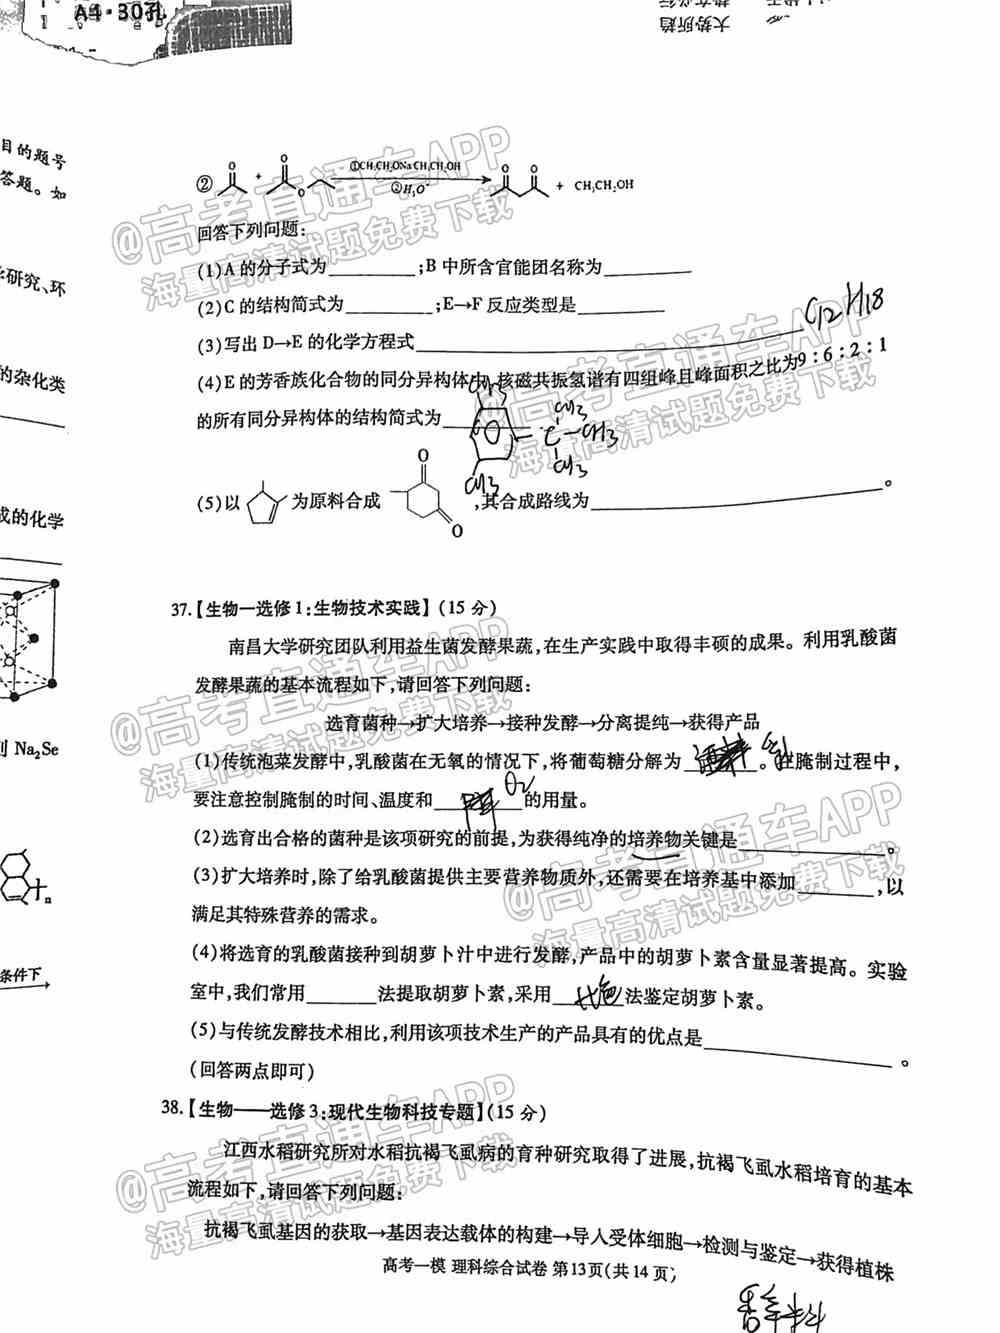 A4·30孔
大势所趋
目的题号
答题。如
②
O
O
O
+
①CH₃CH₂ONaCH₃CH₂OH
②H₃O⁺
O
O
+ CH₃CH₂OH
回答下列问题:
学研究、环
(1)A的分子式为________;B中所含官能团名称为________
(2)C的结构简式为________;E→F反应类型是________
C12H18
(3)写出D→E的化学方程式________
的杂化类
(4)E的芳香族化合物的同分异构体中,核磁共振氢谱有四组峰且峰面积之比为9:6:2:1
的所有同分异构体的结构简式为________
CH3
CH3
C—CH3
CH3
CH3
(5)以 为原料合成 O O ,其合成路线为________。
成的化学
37.【生物一选修1:生物技术实践】(15分)
南昌大学研究团队利用益生菌发酵果蔬,在生产实践中取得丰硕的成果。利用乳酸菌
发酵果蔬的基本流程如下,请回答下列问题:
选育菌种→扩大培养→接种发酵→分离提纯→获得产品
则Na₂Se
(1)传统泡菜发酵中,乳酸菌在无氧的情况下,将葡萄糖分解为________。在腌制过程中,
要注意控制腌制的时间、温度和________的用量。
O2
(2)选育出合格的菌种是该项研究的前提,为获得纯净的培养物关键是________。
(3)扩大培养时,除了给乳酸菌提供主要营养物质外,还需要在培养基中添加________,以
满足其特殊营养的需求。
n
(4)将选育的乳酸菌接种到胡萝卜汁中进行发酵,产品中的胡萝卜素含量显著提高。实验
条件下
室中,我们常用________法提取胡萝卜素,采用________法鉴定胡萝卜素。
(5)与传统发酵技术相比,利用该项技术生产的产品具有的优点是________。
(回答两点即可)
38.【生物——选修3:现代生物科技专题】(15分)
江西水稻研究所对水稻抗褐飞虱病的育种研究取得了进展,抗褐飞虱水稻培育的基本
流程如下,请回答下列问题:
抗褐飞虱基因的获取→基因表达载体的构建→导人受体细胞→检测与鉴定→获得植株
高考一模 理科综合试卷 第13页(共14页)
@高考直通车APP
海量高清试题免费下载
@高考直通车APP
海量高清试题免费下载
@高考直通车APP
海量高清试题免费下载
@高考直通车APP
海量高清试题免费下载
@高考直通车APP
海量高清试题免费下载